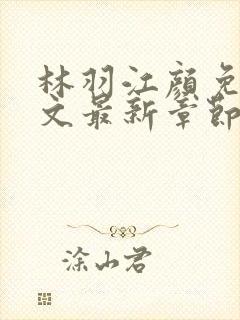 林羽江顔免
文最新章節
涂山君